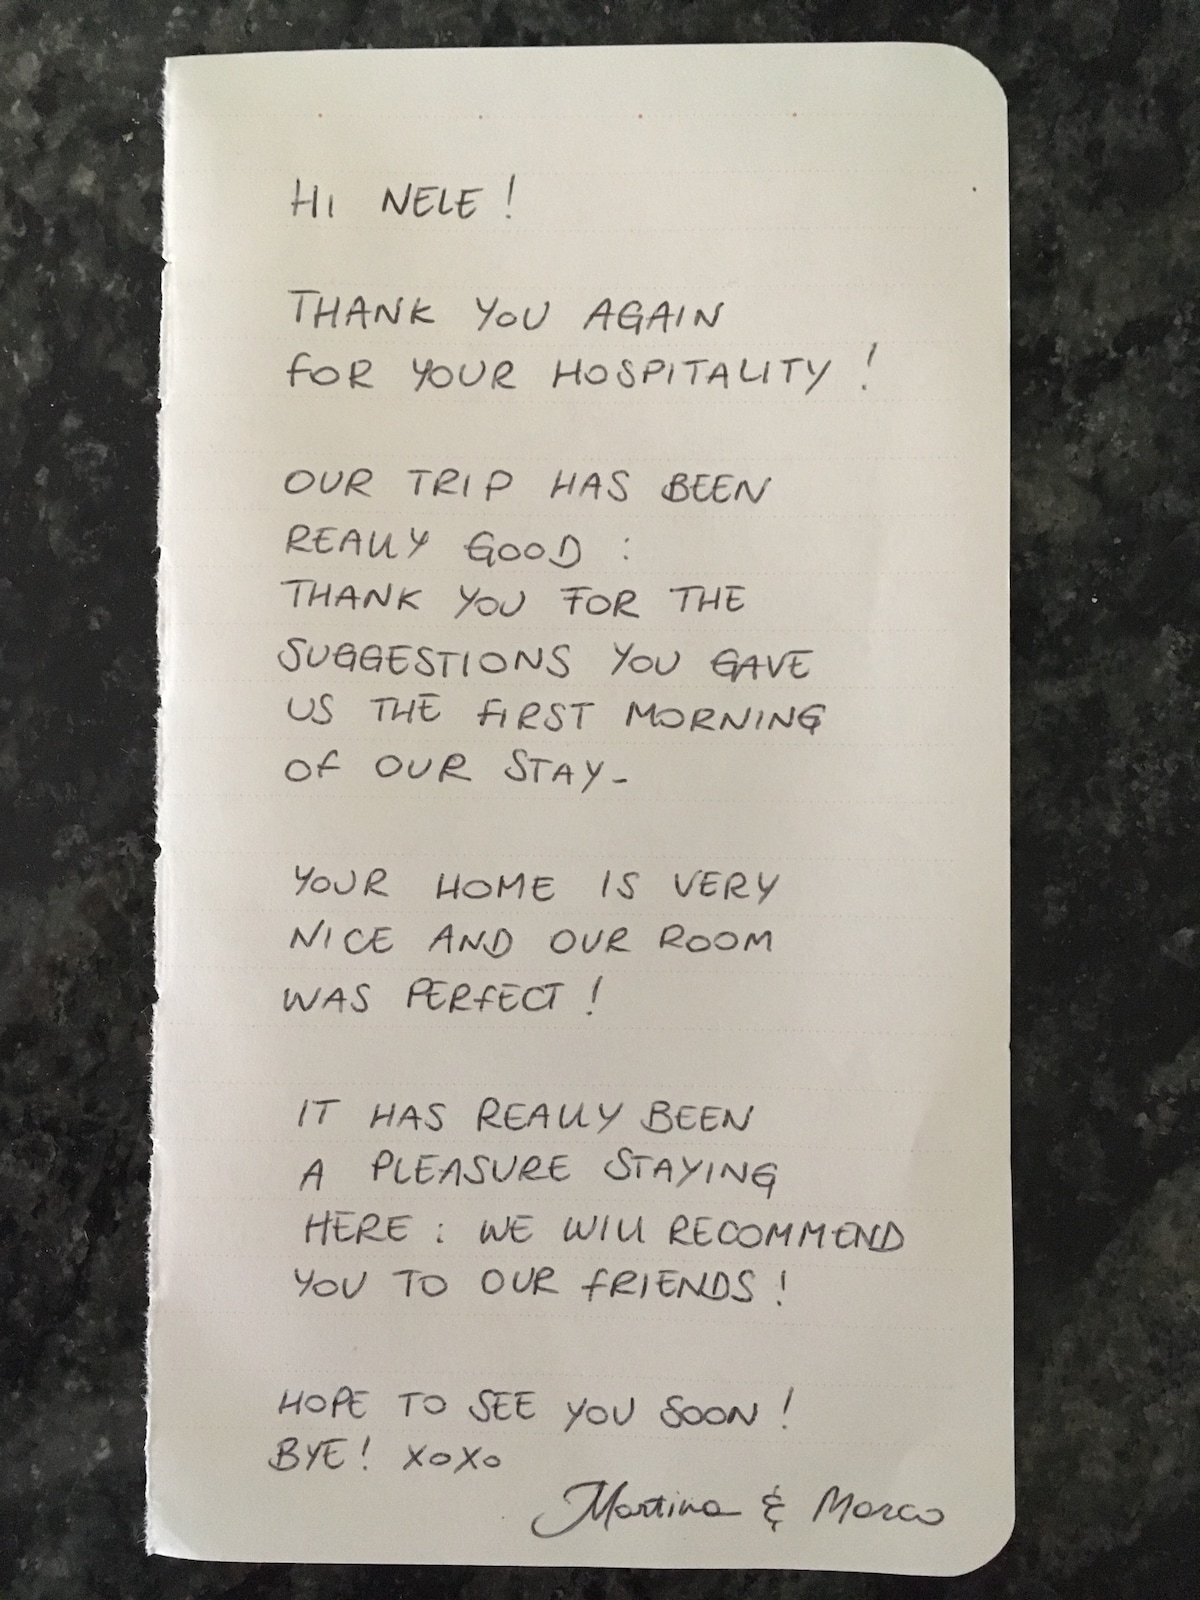 HI NELE!
THANK YOU AGAIN
FOR YOUR HOSPITALITY!
OUR TRIP HAS BEEN
REALLY GOOD:
THANK YOU FOR THE
SUGGESTIONS YOU GAVE
US THE FIRST MORNING
OF OUR STAY-
YOUR HOME IS VERY
NICE AND OUR ROOM
WAS PERFECT!
IT HAS REALLY BEEN
A PLEASURE STAYING
HERE: WE WILL RECOMMEND
YOU TO OUR FRIENDS!
HOPE TO SEE YOU SOON!
BYE! XOXO
Martina & Marco